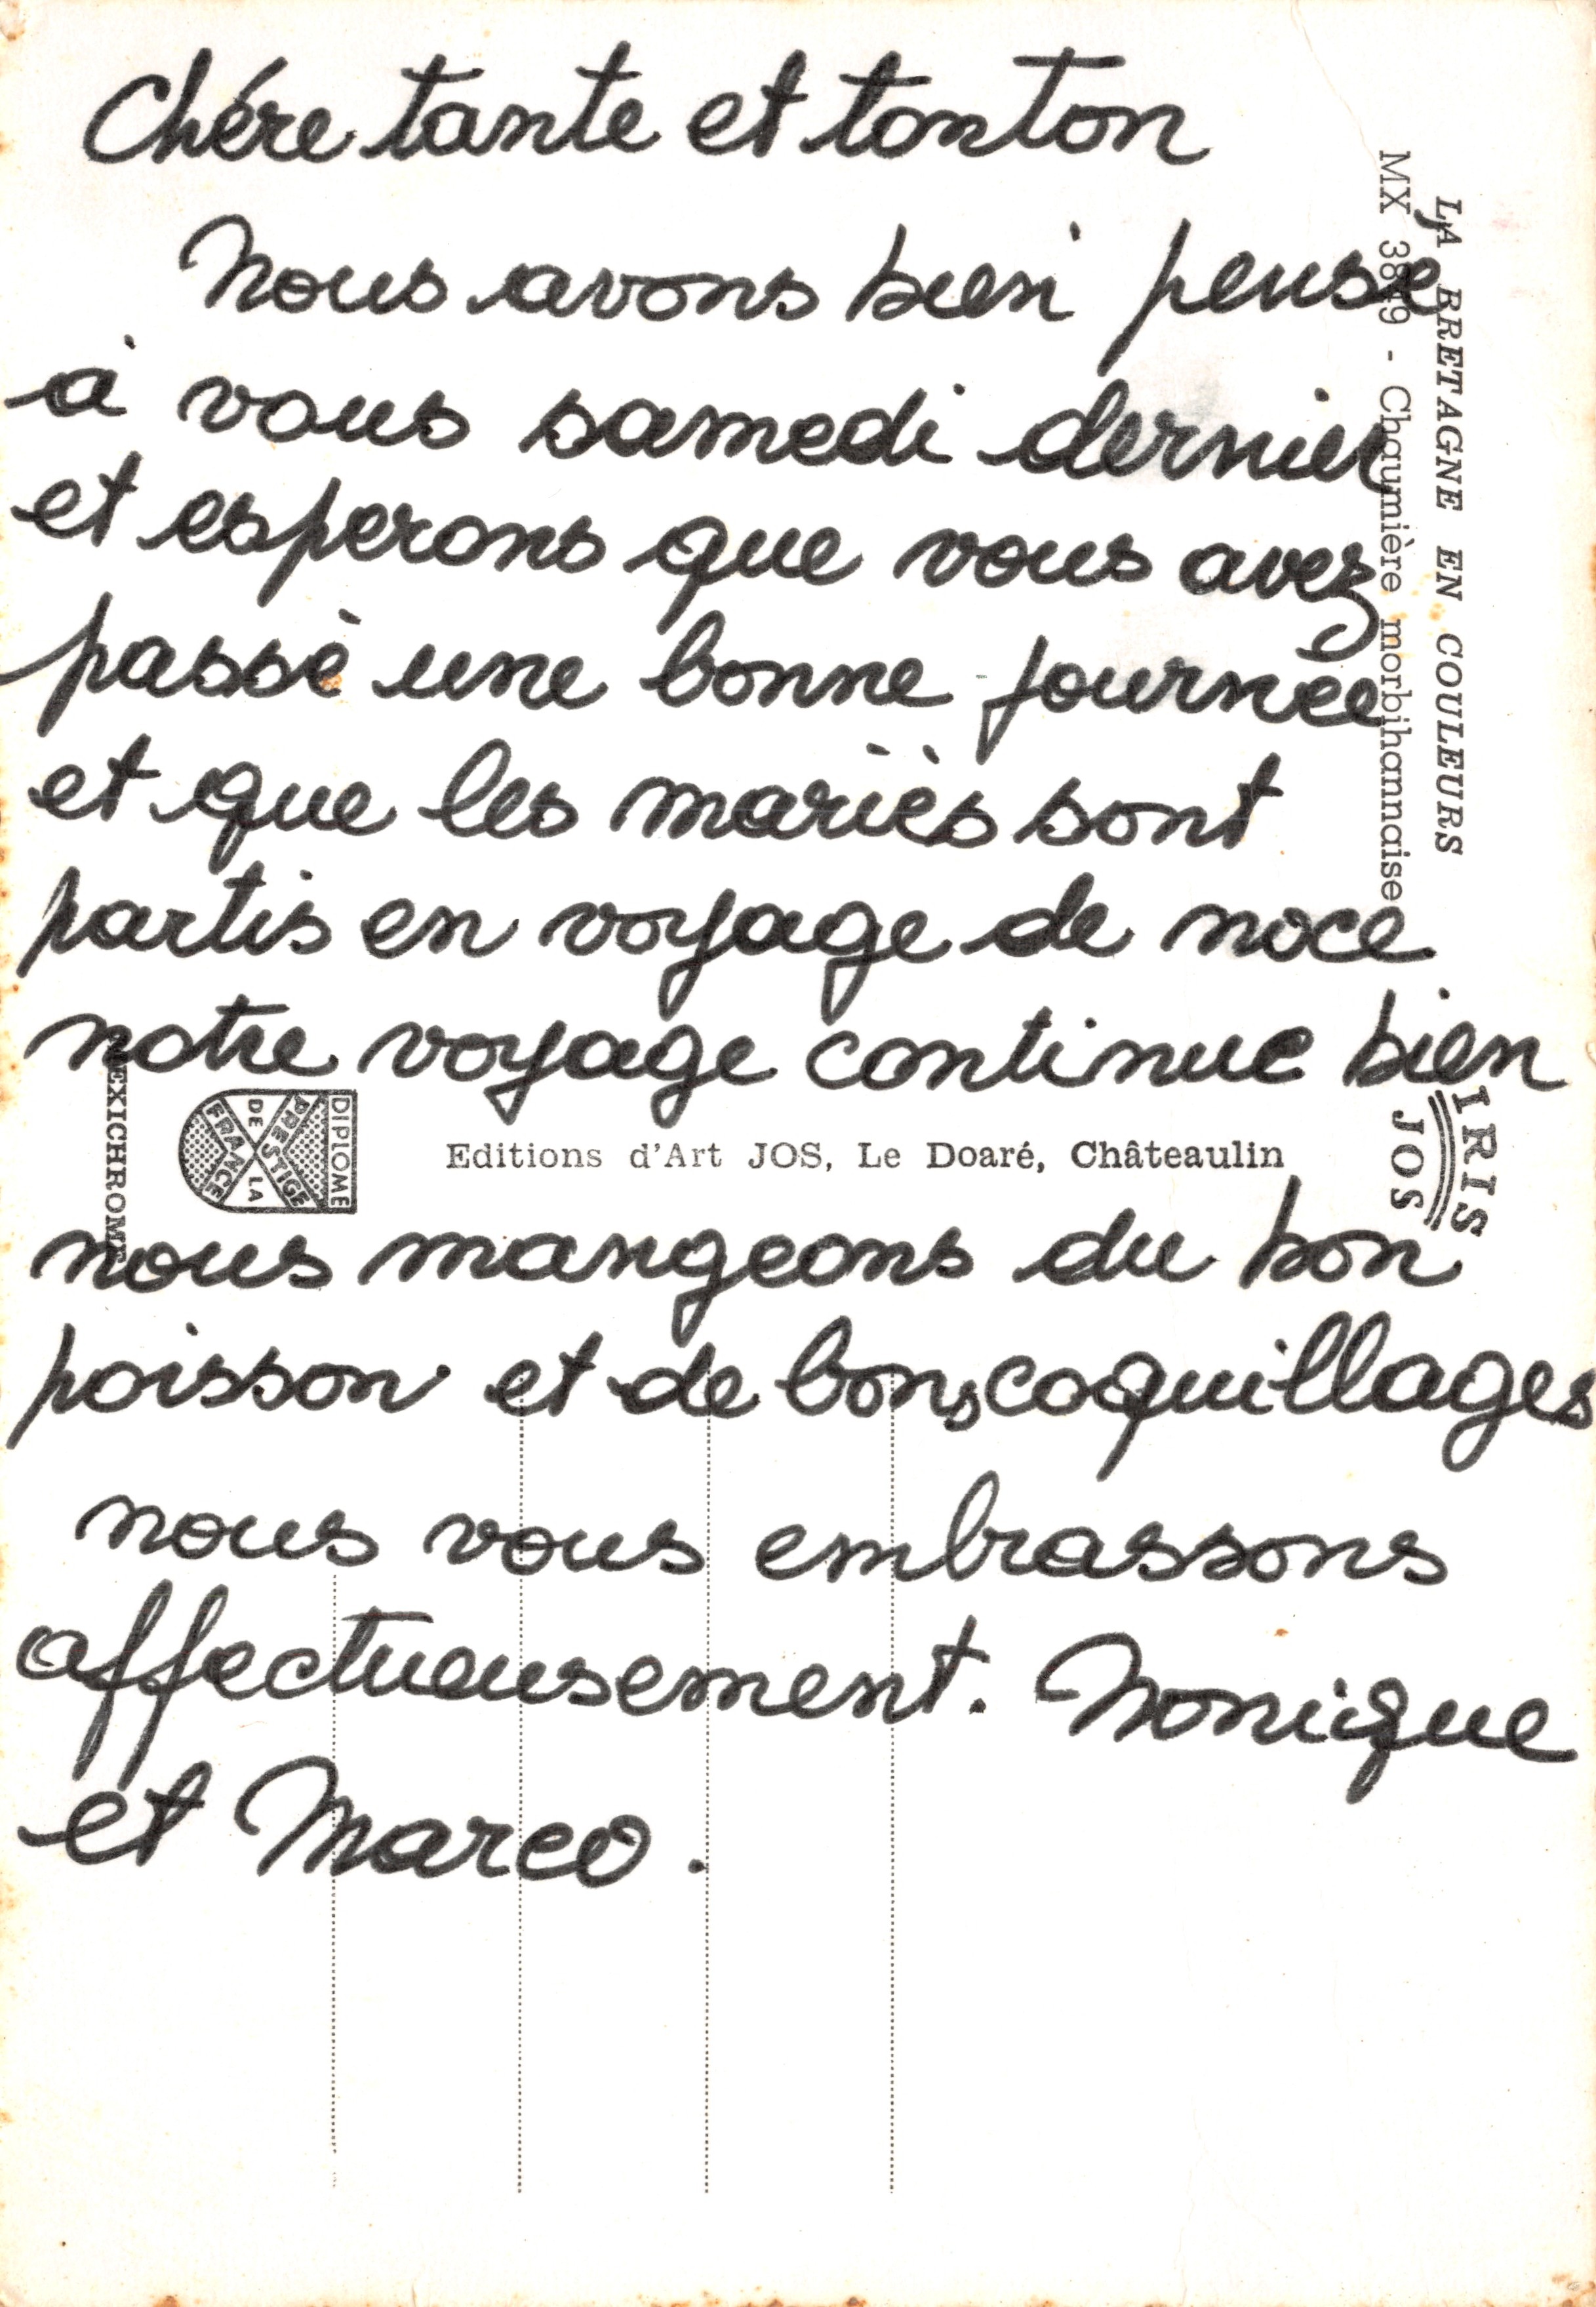 Chére tante et tonton
Nous avons bien pense
à vous samedi dernier
et esperons que vous avez
passé une bonne journée
et que les mariés sont
partis en voyage de noce
notre voyage continue bien
nous mangeons du bon
poisson et de bons coquillages
nous vous embrassons
affectueusement. Monique
et Marco.
LA BRETAGNE EN COULEURS
MX 3849 - Chaumière morbihannaise
IRIS
JOS
Editions d'Art JOS, Le Doaré, Châteaulin
DIPLOME
PRESTIGE
DE LA
FRANCE